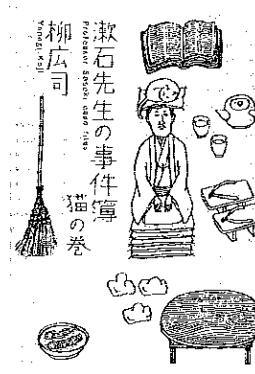 漱石先生の事件簿
Professor Soseki case files
猫の巻
柳広司
Yanagi Koji